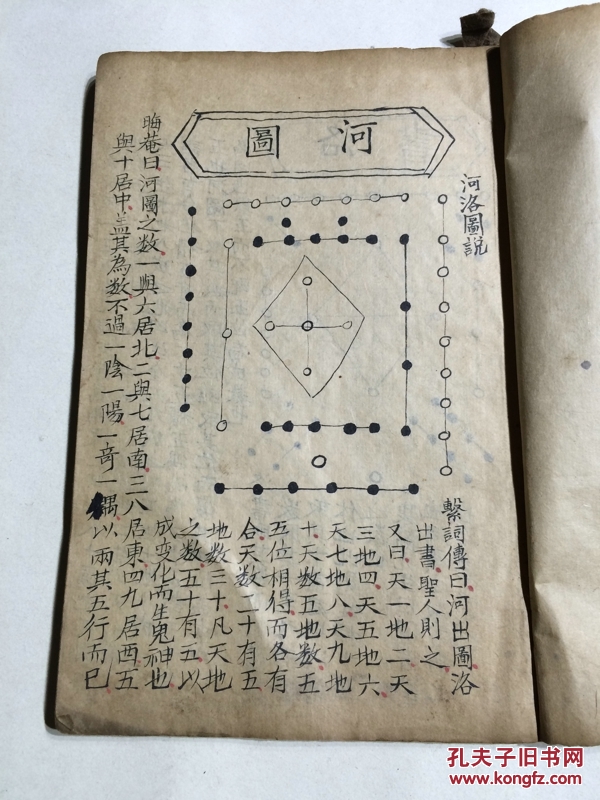 河圖
河洛圖說
繫詞傳曰河出圖洛
出書聖人則之
又曰天一地二天
三地四天五地六
天七地八天九地
十天数五地数五
五位相得而各有
合天数二十有五
地数三十凡天地
之数五十有五以
成变化而生鬼神也
晦菴曰河圖之数一與六居北二與七居南三八居東四九居西五
與十居中盖其為数不過一陰一陽一竒一偶以兩其五行而已
孔夫子旧书网
www.kongfz.com